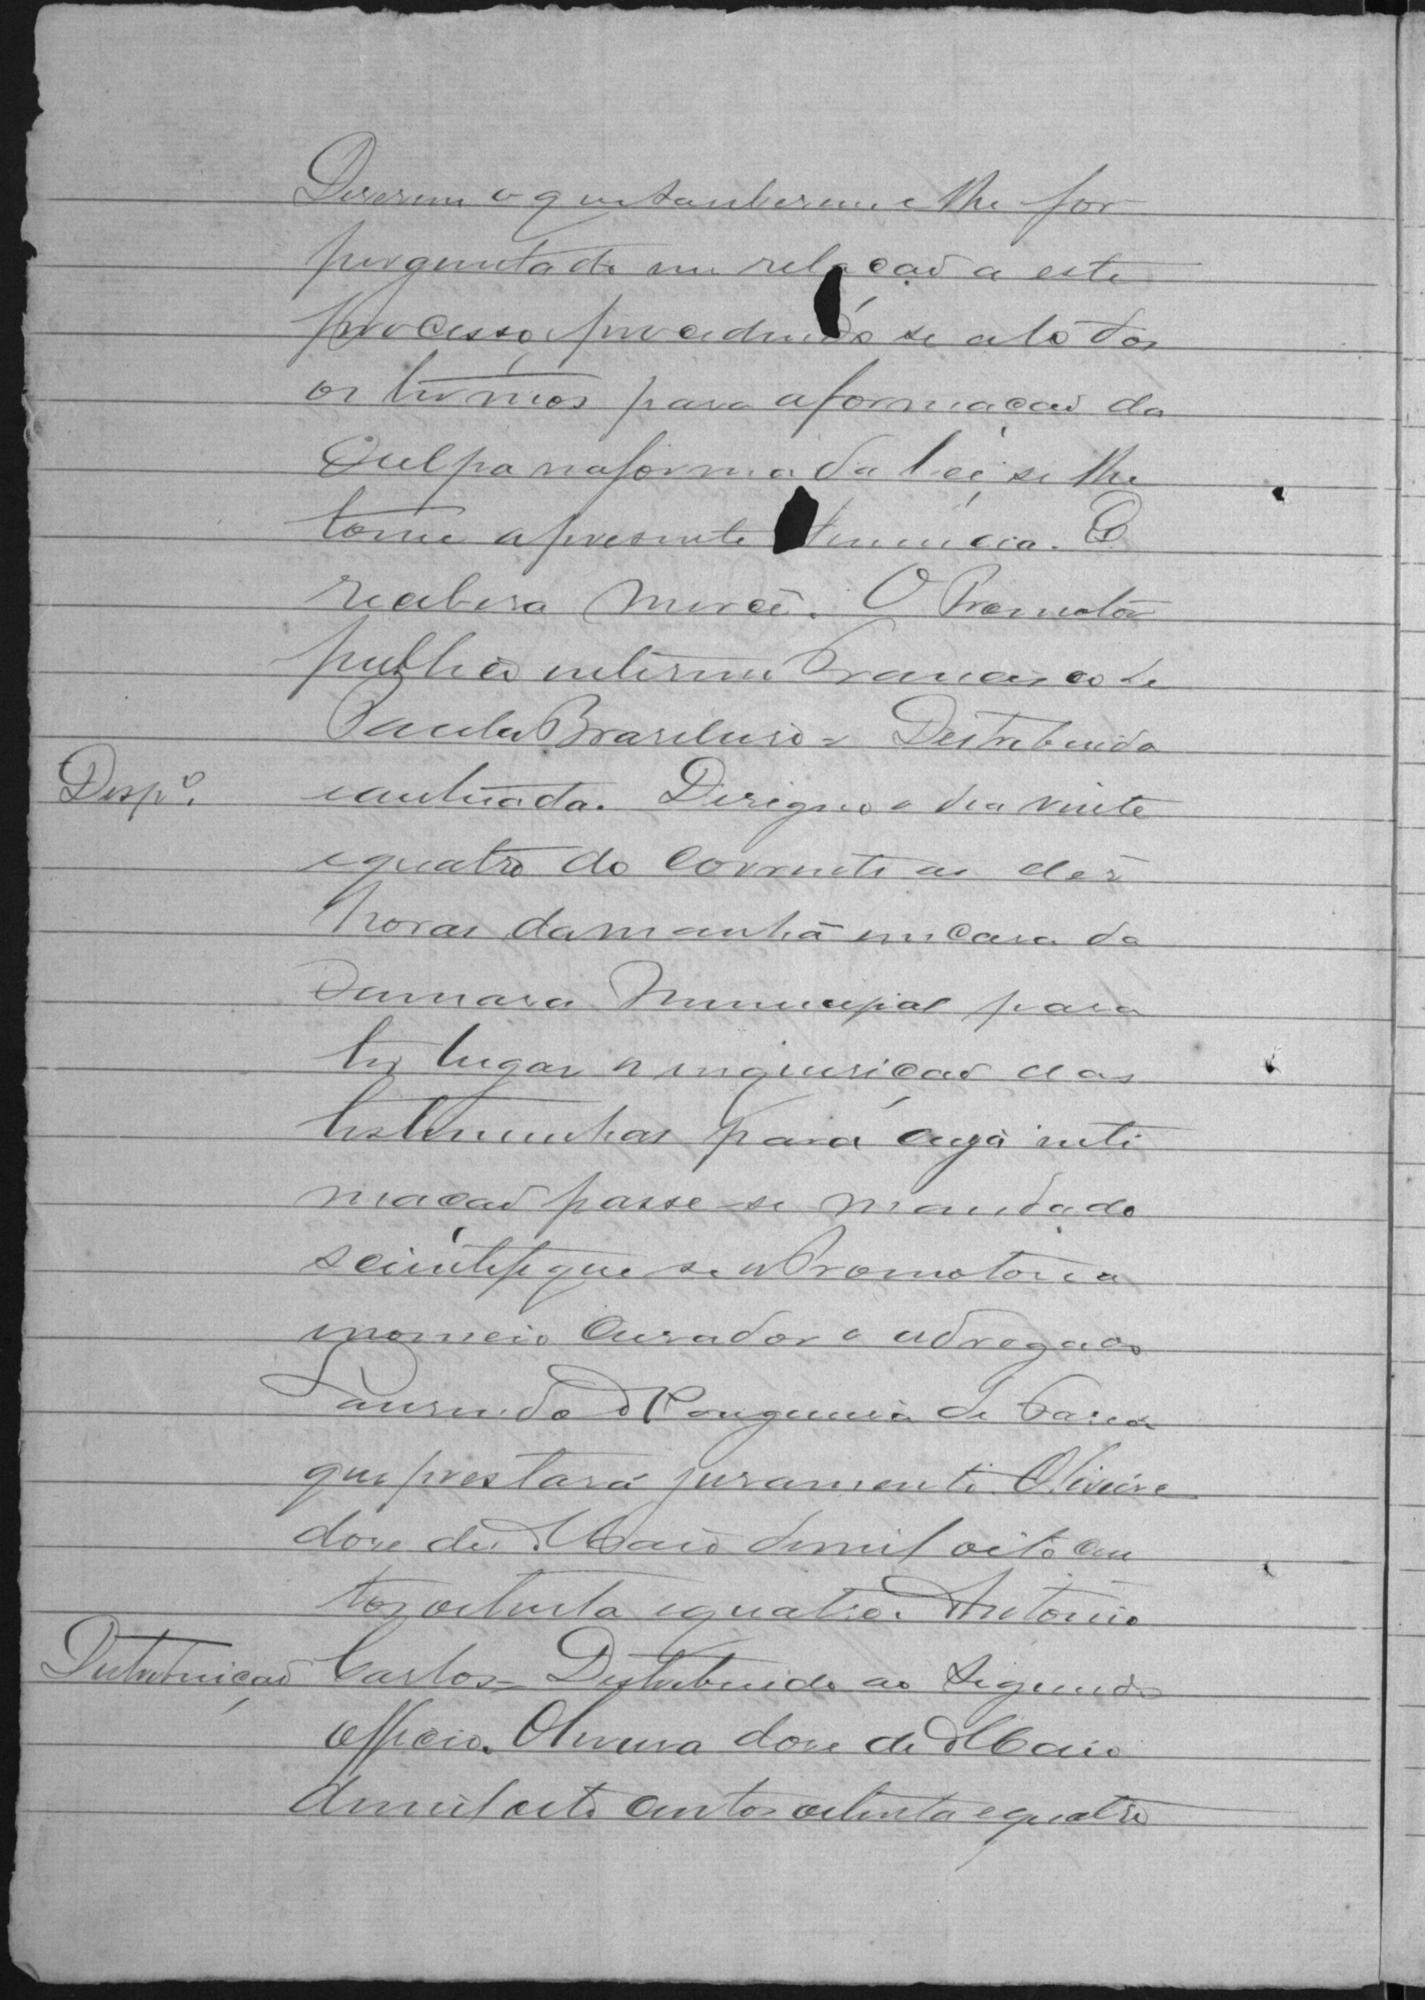 Diserem o que saub erem e lhe for
perguntado em relação a este
processo, procedendo se a todos
os termos para a formação da
Culpa na forma da lei, se lhe
tome a presente denuncia. E
recebera Mercê. O Promotor
publico interino Francisco de
Paula Brasiliense = Destribuida
Desp.º eautuada. Disigno o dia vinte
equatro do Corrente as dés
horas da manhã em casa da
Camara Municipal para
ter lugar a inquirição das
testimunhas para cuja inti
mação passe-se mandado
scientifique se a Promotoria
enomeio Curador o advogado
Laurindo de Faria
que prestará juramento. Oliveira
dose de Maio demil oito cen
tos oitenta equatro. Antonio
Distribuição Carlos = Distribuido ao Segundo
officio. Oliveira dose de Maio
demil oito centos oitenta equatro